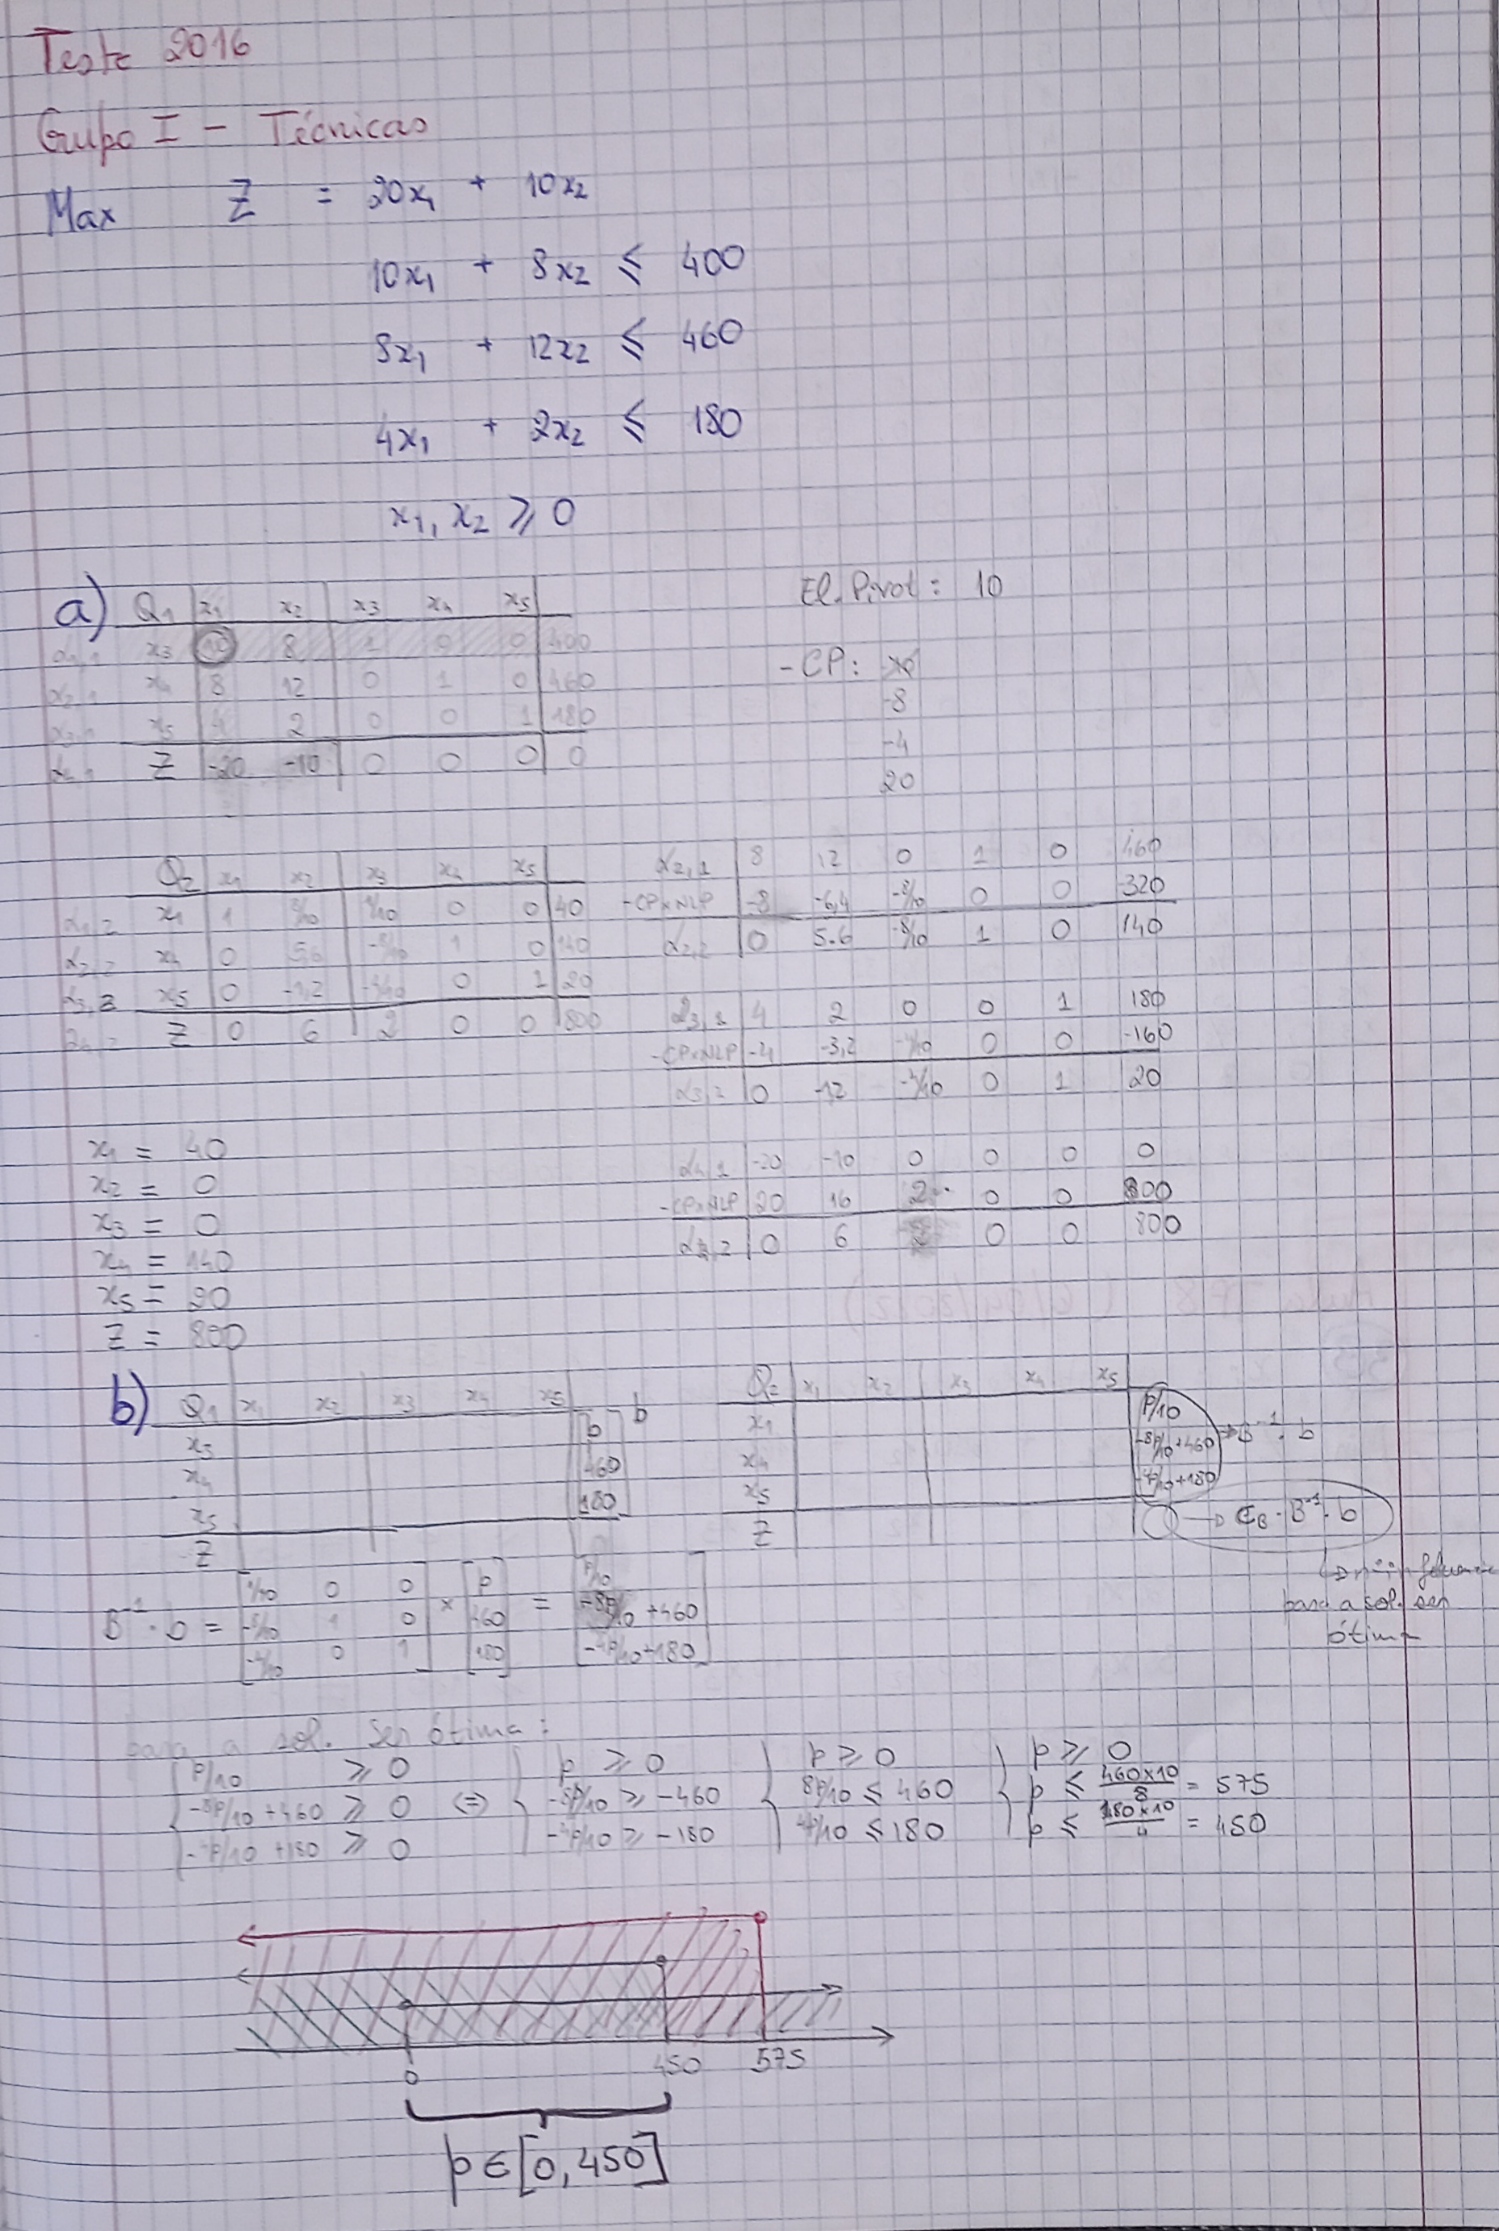 Teste 2016
Grupo I - Técnicas
Max Z = 20x1 + 10x2
10x1 + 8x2 ≤ 400
8x1 + 12x2 ≤ 460
4x1 + 2x2 ≤ 180
x1, x2 ≥ 0
a) Q1 x1 x2 x3 x4 x5
α1,1 x3 10 8 1 0 0 400
α2,1 x4 8 12 0 1 0 460
α3,1 x5 4 2 0 0 1 180
α4,1 Z -20 -10 0 0 0 0
El. Pivot: 10
-CP:
-8
-4
20
Q2 x1 x2 x3 x4 x5
α1,2 x1 1 8/10 1/10 0 0 40
α2,2 x4 0 5,6 -8/10 1 0 140
α3,2 x5 0 -1,2 -4/10 0 1 20
α4,2 Z 0 6 2 0 0 800
α2,1 8 12 0 1 0 460
-CP×NLP -8 -6,4 -8/10 0 0 -320
α2,2 0 5.6 -8/10 1 0 140
α3,1 4 2 0 0 1 180
-CP×NLP -4 -3,2 -4/10 0 0 -160
α3,2 0 -1,2 -4/10 0 1 20
α4,1 -20 -10 0 0 0 0
-CP×NLP 20 16 2 0 0 800
0 6 2 0 0 800
x1 = 40
x2 = 0
x3 = 0
x4 = 140
x5 = 20
Z = 800
b) Q1 x1 x2 x3 x4 x5 b
x3 p
x4 460
x5 180
Z 0
Q2 x1 x2 x3 x4 x5
x1 p/10
x4 -8p/10+460 → B⁻¹ · b
x5 -4p/10+180
Z → CB · B⁻¹ · b
para a sol. ser
ótima
B⁻¹ · b = [1/10 0 0] [p] [p/10]
[-8/10 1 0] × [460] = [-8p/10 + 460]
[-4/10 0 1] [180] [-4p/10+180]
para a sol. ser ótima:
p/10 ≥ 0 p ≥ 0 p ≥ 0 p ≥ 0
-8p/10 + 460 ≥ 0 (=) -8p/10 ≥ -460 8p/10 ≤ 460 p ≤ 460×10/8 = 575
-4p/10 + 180 ≥ 0 -4p/10 ≥ -180 4p/10 ≤ 180 p ≤ 180×10/4 = 450
0 450 575
p ∈ [0, 450]